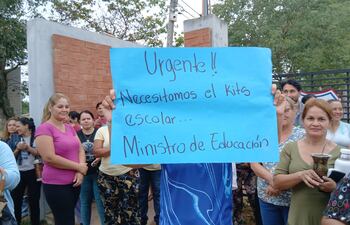 Urgente!!
Necesitamos el kits
escolar...
Ministro de Educación